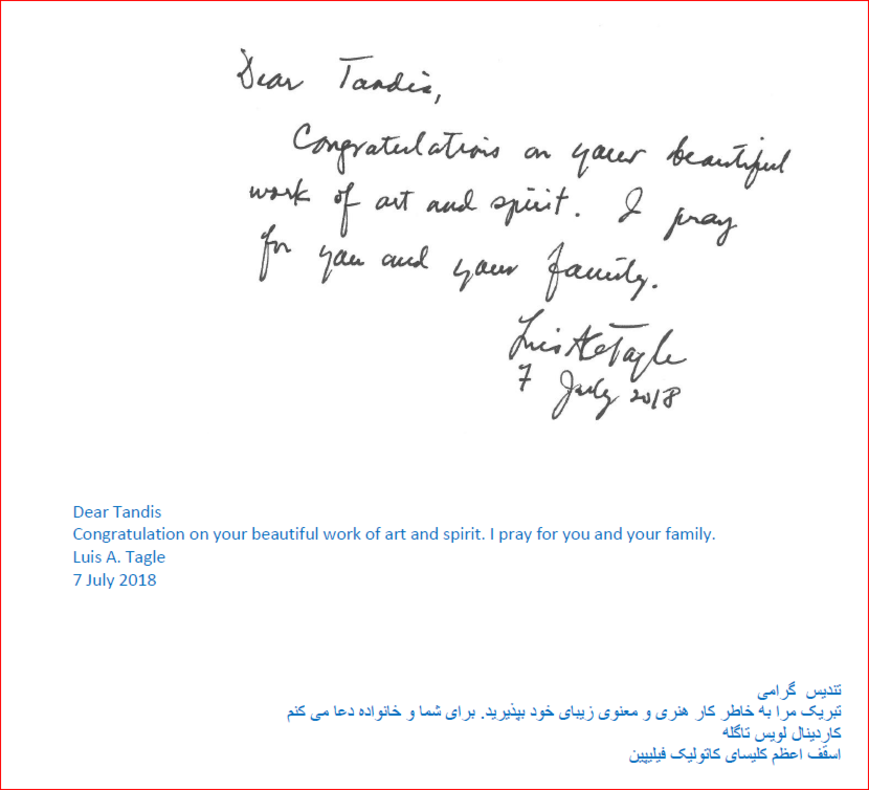 Dear Tandis,
Congratulations on your beautiful
work of art and spirit. I pray
for you and your family.
Luis A G Tagle
7 July 2018
Dear Tandis
Congratulation on your beautiful work of art and spirit. I pray for you and your family.
Luis A. Tagle
7 July 2018
تندیس گرامی
تبریک مرا به خاطر کار هنری و معنوی زیبای خود بپذیرید. برای شما و خانواده دعا می کنم
کاردینال لویس تاگله
اسقف اعظم کلیسای کاتولیک فیلیپین